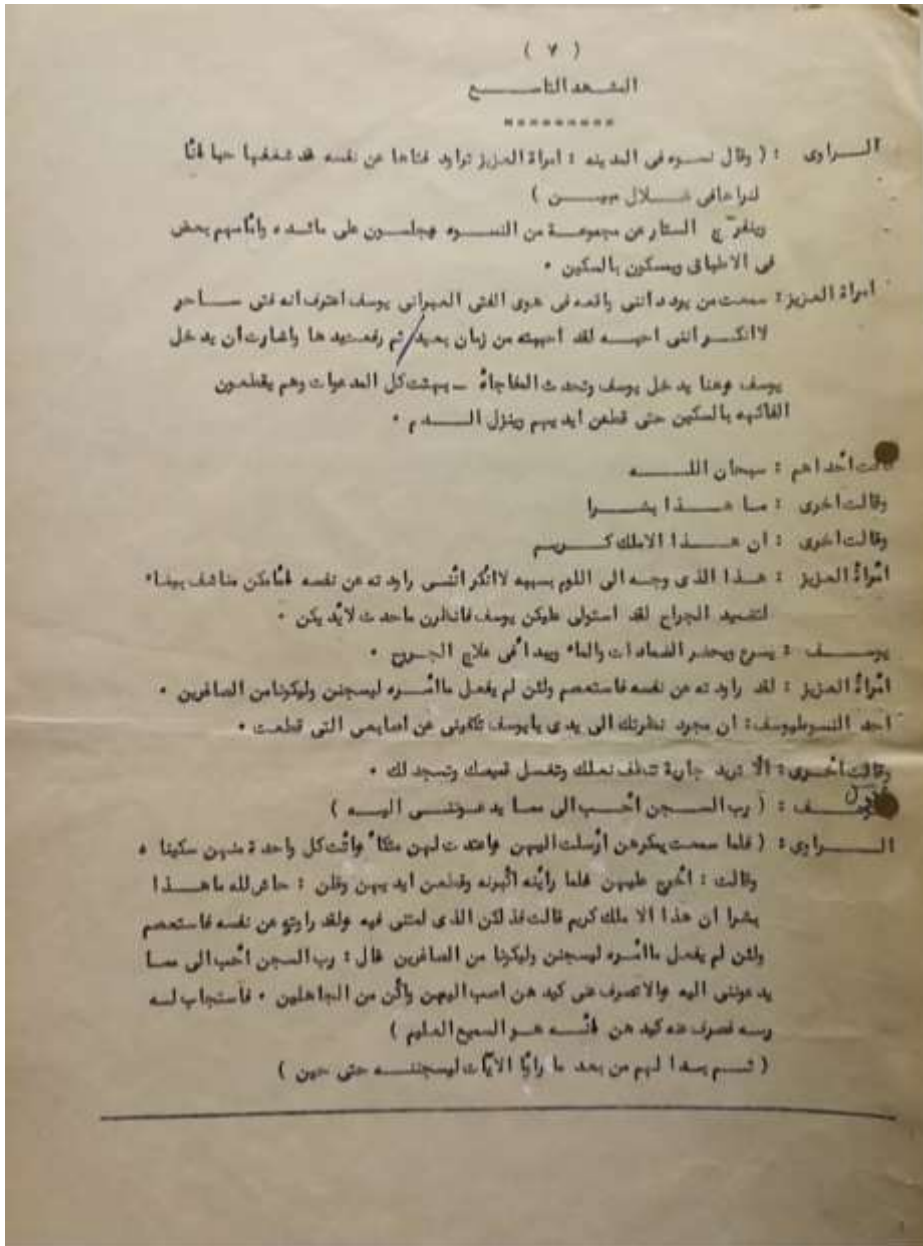 ( ٧ )
المشهد التاسع
=========
الراوى : ( وقال نسوه فى المدينه : امراة العزيز تراود فتاها عن نفسه قد شغفها حبا انا
لنراها فى ضلال مبين )
وينفرج الستار عن مجموعة من النسوه يجلسون على مائده وامامهم بعض
فى الاطباق ويمسكون بالسكين .
امراة العزيز : سمعت من يردد اننى واقعه فى هوى الفتى العبرانى يوسف اعترف انه فتى ساحر
لا انكر اننى احبه لقد احببته من زمان بعيد / ثم رفعت يدها واشارت أن يدخل
يوسف وهنا يدخل يوسف وتحدث المفاجأة - يبهت كل المدعوات وهم يقطعون
الفاكهه بالسكين حتى قطعن ايديهم وينزل الدم .
قالت أحداهم : سبحان الله
وقالت اخرى : ما هذا بشرا
وقالت اخرى : ان هذا الا ملك كريم
امرأة العزيز : هذا الذى وجه الى اللوم بسببه لا أنكر أننى راودته عن نفسه فأمامكن مناشف بيضاء
لتضميد الجراح لقد استولى عليكن يوسف فانظرن ماحدث لأيديكن .
يوسف : يسرع ويحضر الضمادات والماء ويبدأ فى علاج الجروح .
امرأة العزيز : لقد راودته عن نفسه فاستعصم ولئن لم يفعل ماأمره ليسجنن وليكونا من الصاغرين .
احد النسوه ليوسف : ان مجرد نظرتك الى يدى يايوسف تكفينى عن اصابعى التى قطعت .
وقالت أخرى : ألا تريد جارية تنظف نعلك وتغسل قميصك وتسجد لك .
يوسف : ( رب السجن أحب الى مما يدعوننى اليه )
الراوى : ( فلما سمعت بمكرهن أرسلت اليهن واعتدت لهن متكأ وأتت كل واحدة منهن سكينا ،
وقالت : أخرج عليهن فلما رأينه أكبرنه وقطعن ايديهن وقلن : حاش لله ما هذا
بشرا ان هذا الا ملك كريم قالت فذلكن الذى لمتنى فيه ولقد راودته عن نفسه فاستعصم
ولئن لم يفعل ماأمره ليسجنن وليكونا من الصاغرين قال : رب السجن أحب الى مما
يدعوننى اليه والاتصرف عنى كيدهن اصب اليهن وأكن من الجاهلين . فأستجاب له
ربه فصرف عنه كيدهن انه هو السميع العليم )
( ثم بدا لهم من بعد ما رأوا الايات ليسجننه حتى حين )